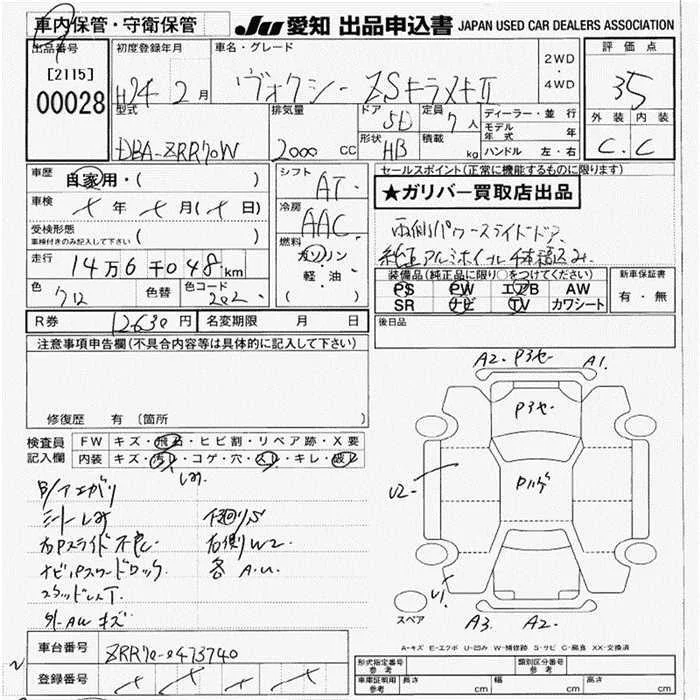 車内保管・守衛保管
JU 愛知 出品申込書 JAPAN USED CAR DEALERS ASSOCIATION
出品番号
[2115]
00028
初度登録年月
H24年2月
車名・グレード
ヴォクシー ZSキラメキII
2WD
・
4WD
評価点
35
外装 内装
C. C
型式
DBA-ZRR70W
排気量
2000 CC
ドア 5D
形状 HB
定員 7人
積載 kg
ディーラー・並行
モデル年式 年
ハンドル 左・右
車歴 自家用・( )
車検 年 月( 日)
受検形態
車検付きのみ記入して下さい ( )
走行 14万6千048km
色 クロ
色替
色コード 202
シフト AT
冷房 AAC
燃料
ガソリン
軽・油
( )
セールスポイント(正常に機能するものに限ります)
★ガリバー買取店出品
両側パワースライドドア
純正アルミホイル
装備品(純正品に限り○をつけてください)
PS PW エアB AW
SR ナビ TV カワシート
新車保証書
有・無
後日品
R券 12630円
名変期限 月 日
注意事項申告欄(不具合内容等は具体的に記入して下さい)
修復歴 有 〔箇所
検査員記入欄
FW キズ・飛石・ヒビ割・リペア跡・X要
内装 キズ・汚レ・コゲ・穴・スレ・キレ・破レ
しみ
シートしみ
右Pスライド不良
ナビパスワードロック
スタッドレスT.
外AWキズ
下回りS
右側W2
各A.U.
A2. P3セ A1.
P3セ
Pハゲ
U2
U1
A3. A2.
スペア
A-キズ E-エクボ U-凹み W-補修跡 S-サビ C-腐食 XX-交換済
車台番号 ZRR70-0473740
登録番号
型式指定番号
参考
類別区分番号
参考
車庫証明用
参考
長さ cm
幅 cm
高さ cm